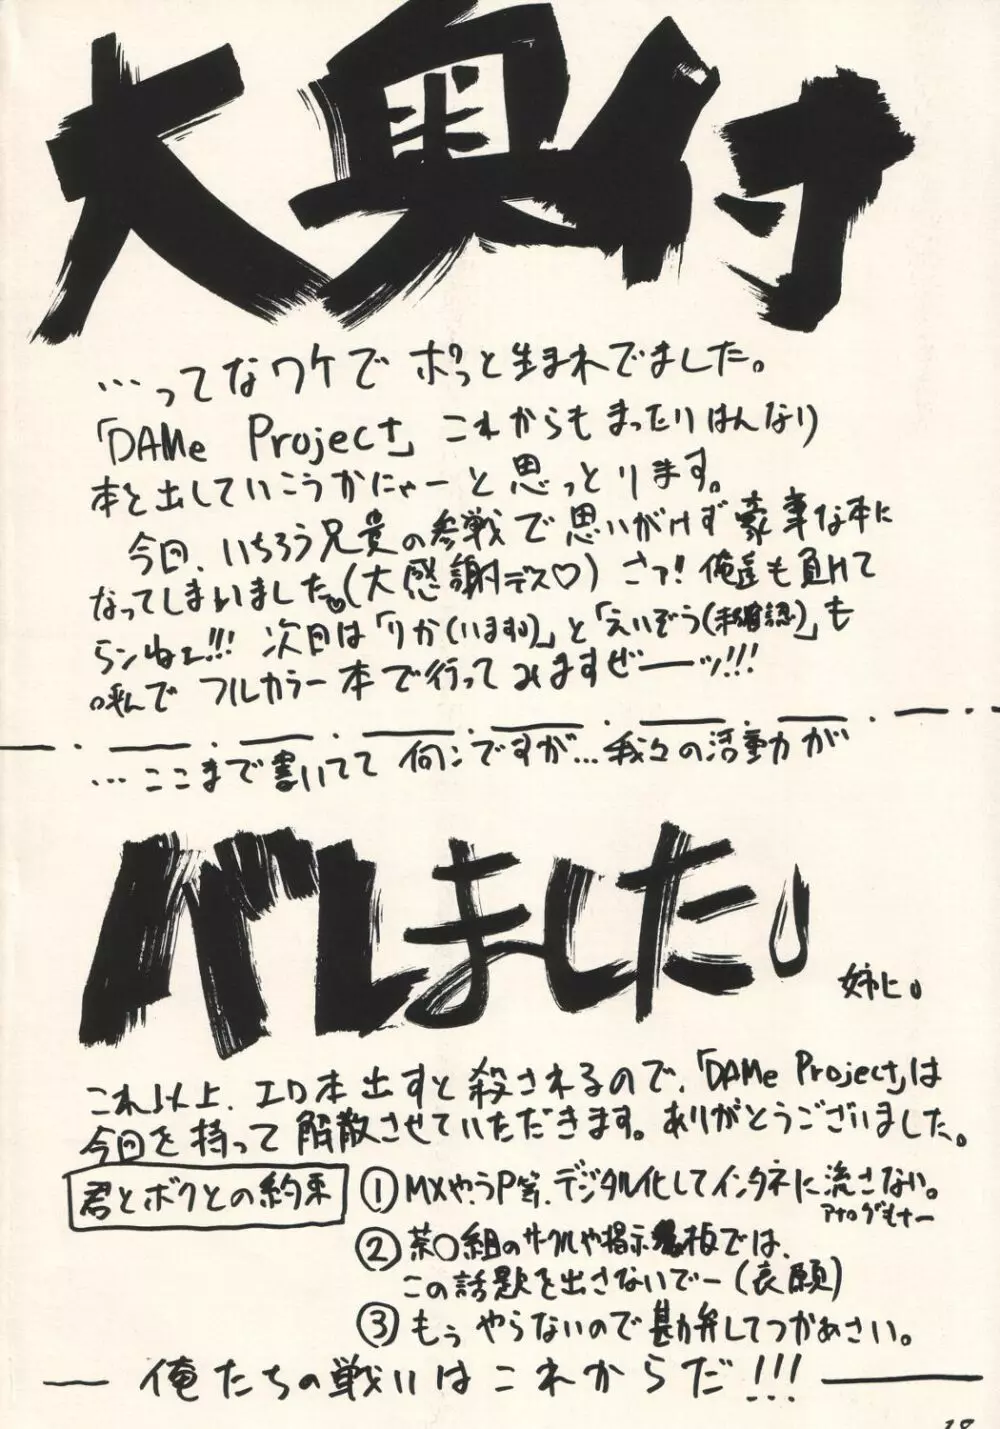 大奥付
…ってなワケでポっと生まれでました。
「DAMe Project」これからもまったりはんなり
本を出していこうかにゃーと思っとります。
今回、いちろう兄貴の参戦で思いがけず豪華な本に
なってしまいました♡(大感謝デス♡) さァ!俺達も負けて
らンねェ!!! 次回は「りか(います)」と「えいぞう(未確認)」も
呼んでフルカラー本で行ってみますぜーーッ!!!
…ここまで書いてて何ンですが…我々の活動が
バレました。
姉に。
これ以上、エロ本出すと殺されるので、「DAMe Project」は
今回を持って解散させていただきます。ありがとうございました。
君とボクとの約束
①MXやうP等、デジタル化してインタネに流さない。
アナログもナー
②茶〇組のサークルや掲示板では、
この話題を出さないでー(哀願)
③もぅやらないので勘弁してつかぁさい。
俺たちの戦いはこれからだ!!!
18